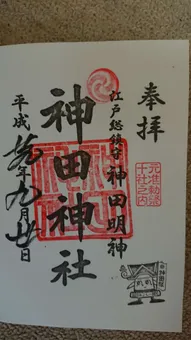 奉拝
元准勅祭
十社之内
江戸総鎮守
神田明神
神田神社
平成
年九月廿日